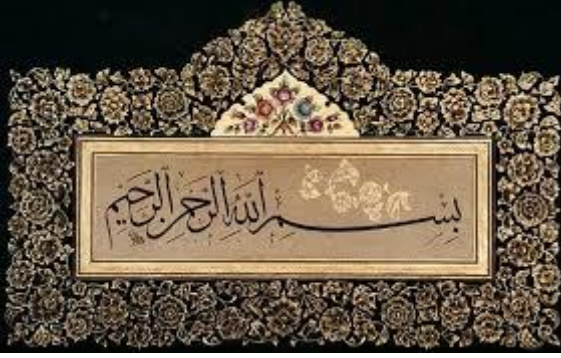 بِسْمِ اللهِ الرَّحْمنِ الرَّحیمِ